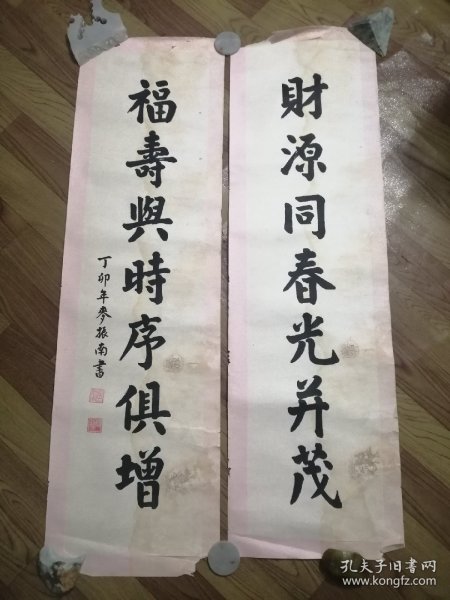 財源同春光并茂
福壽與時序俱增
丁卯年麥振南書
孔夫子旧书网
www.kongfz.com